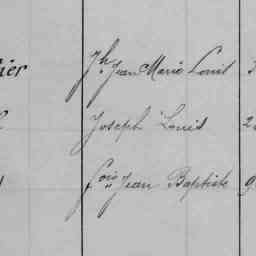 ier Jh Jean Marie Louis 3
Joseph Louis 2
fois Jean Baptiste 9